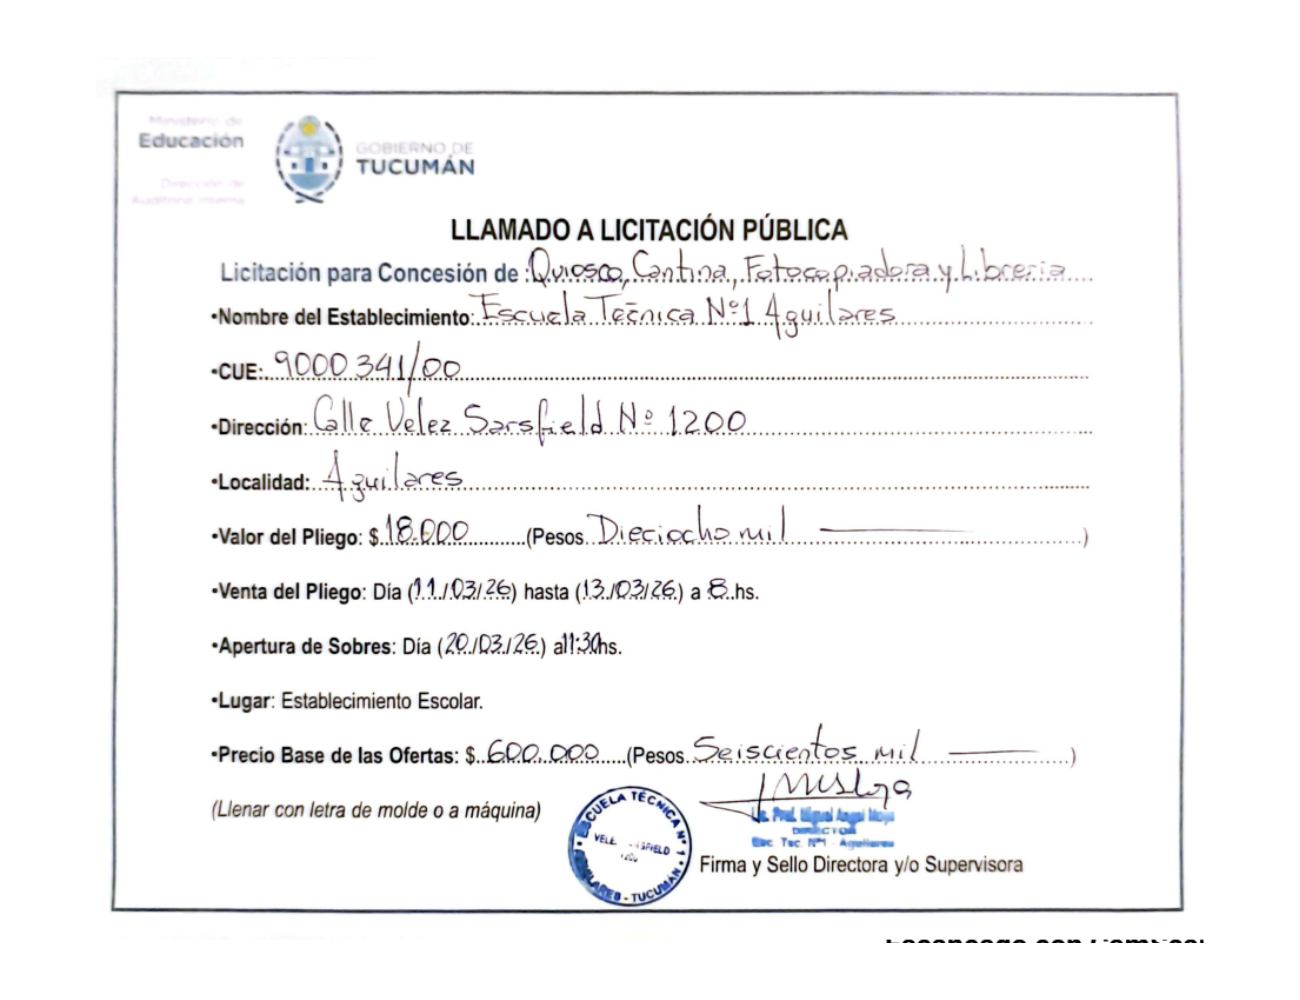 Ministerio de
Educación
Dirección de
Auditoría Interna
GOBIERNO DE
TUCUMÁN
LLAMADO A LICITACIÓN PÚBLICA
Licitación para Concesión de : Quiosco, Cantina, Fotocopiadora y Libreria
•Nombre del Establecimiento: Escuela Técnica Nº1 Aguilares
•CUE: 9000341/00
•Dirección: Calle Velez Sarsfield Nº 1200
•Localidad: Aguilares
•Valor del Pliego: $ 18.000 (Pesos Dieciocho mil )
•Venta del Pliego: Día (11/03/26) hasta (13/03/26) a 8 hs.
•Apertura de Sobres: Día (20/03/26) a 11:30 hs.
•Lugar: Establecimiento Escolar.
•Precio Base de las Ofertas: $ 600.000 (Pesos Seiscientos mil )
(Llenar con letra de molde o a máquina)
ESCUELA TÉCNICA Nº 1
AGUILARES - TUCUMÁN
Prof. Miguel Angel Moya
DIRECTOR
Esc. Tec. Nº1 - Aguilares
Firma y Sello Directora y/o Supervisora